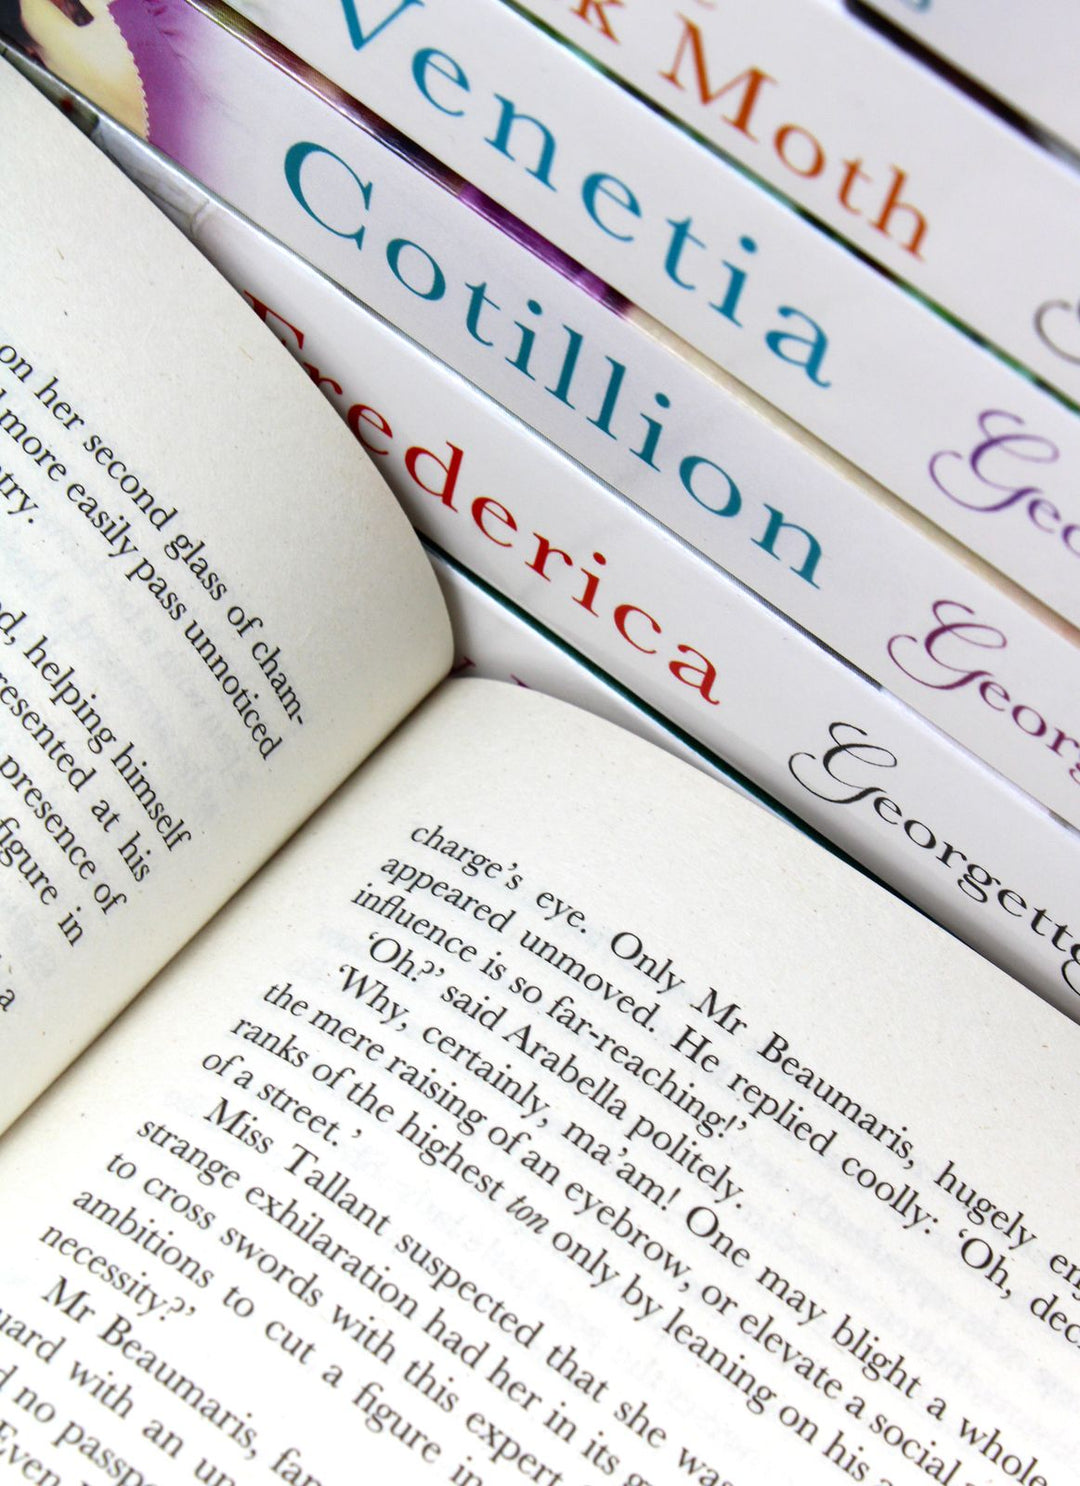 Moth
Venetia
Cotillion
Frederica
Georgette
on her second glass of cham-
more easily pass unnoticed
helping himself
at his
presence of
figure in
a
charge's eye. Only Mr Beaumaris, hugely
appeared unmoved. He replied coolly: 'Oh,
influence is so far-reaching!'
'Oh?' said Arabella politely.
'Why, certainly, ma'am! One may blight a whole
the mere raising of an eyebrow, or elevate a social
ranks of the highest ton only by leaning on his
of a street.'
Miss Tallant suspected that she was
strange exhilaration had her in its
to cross swords with this expert
ambitions to cut a figure in
necessity?'
Mr Beaumaris,
with an
no
Even